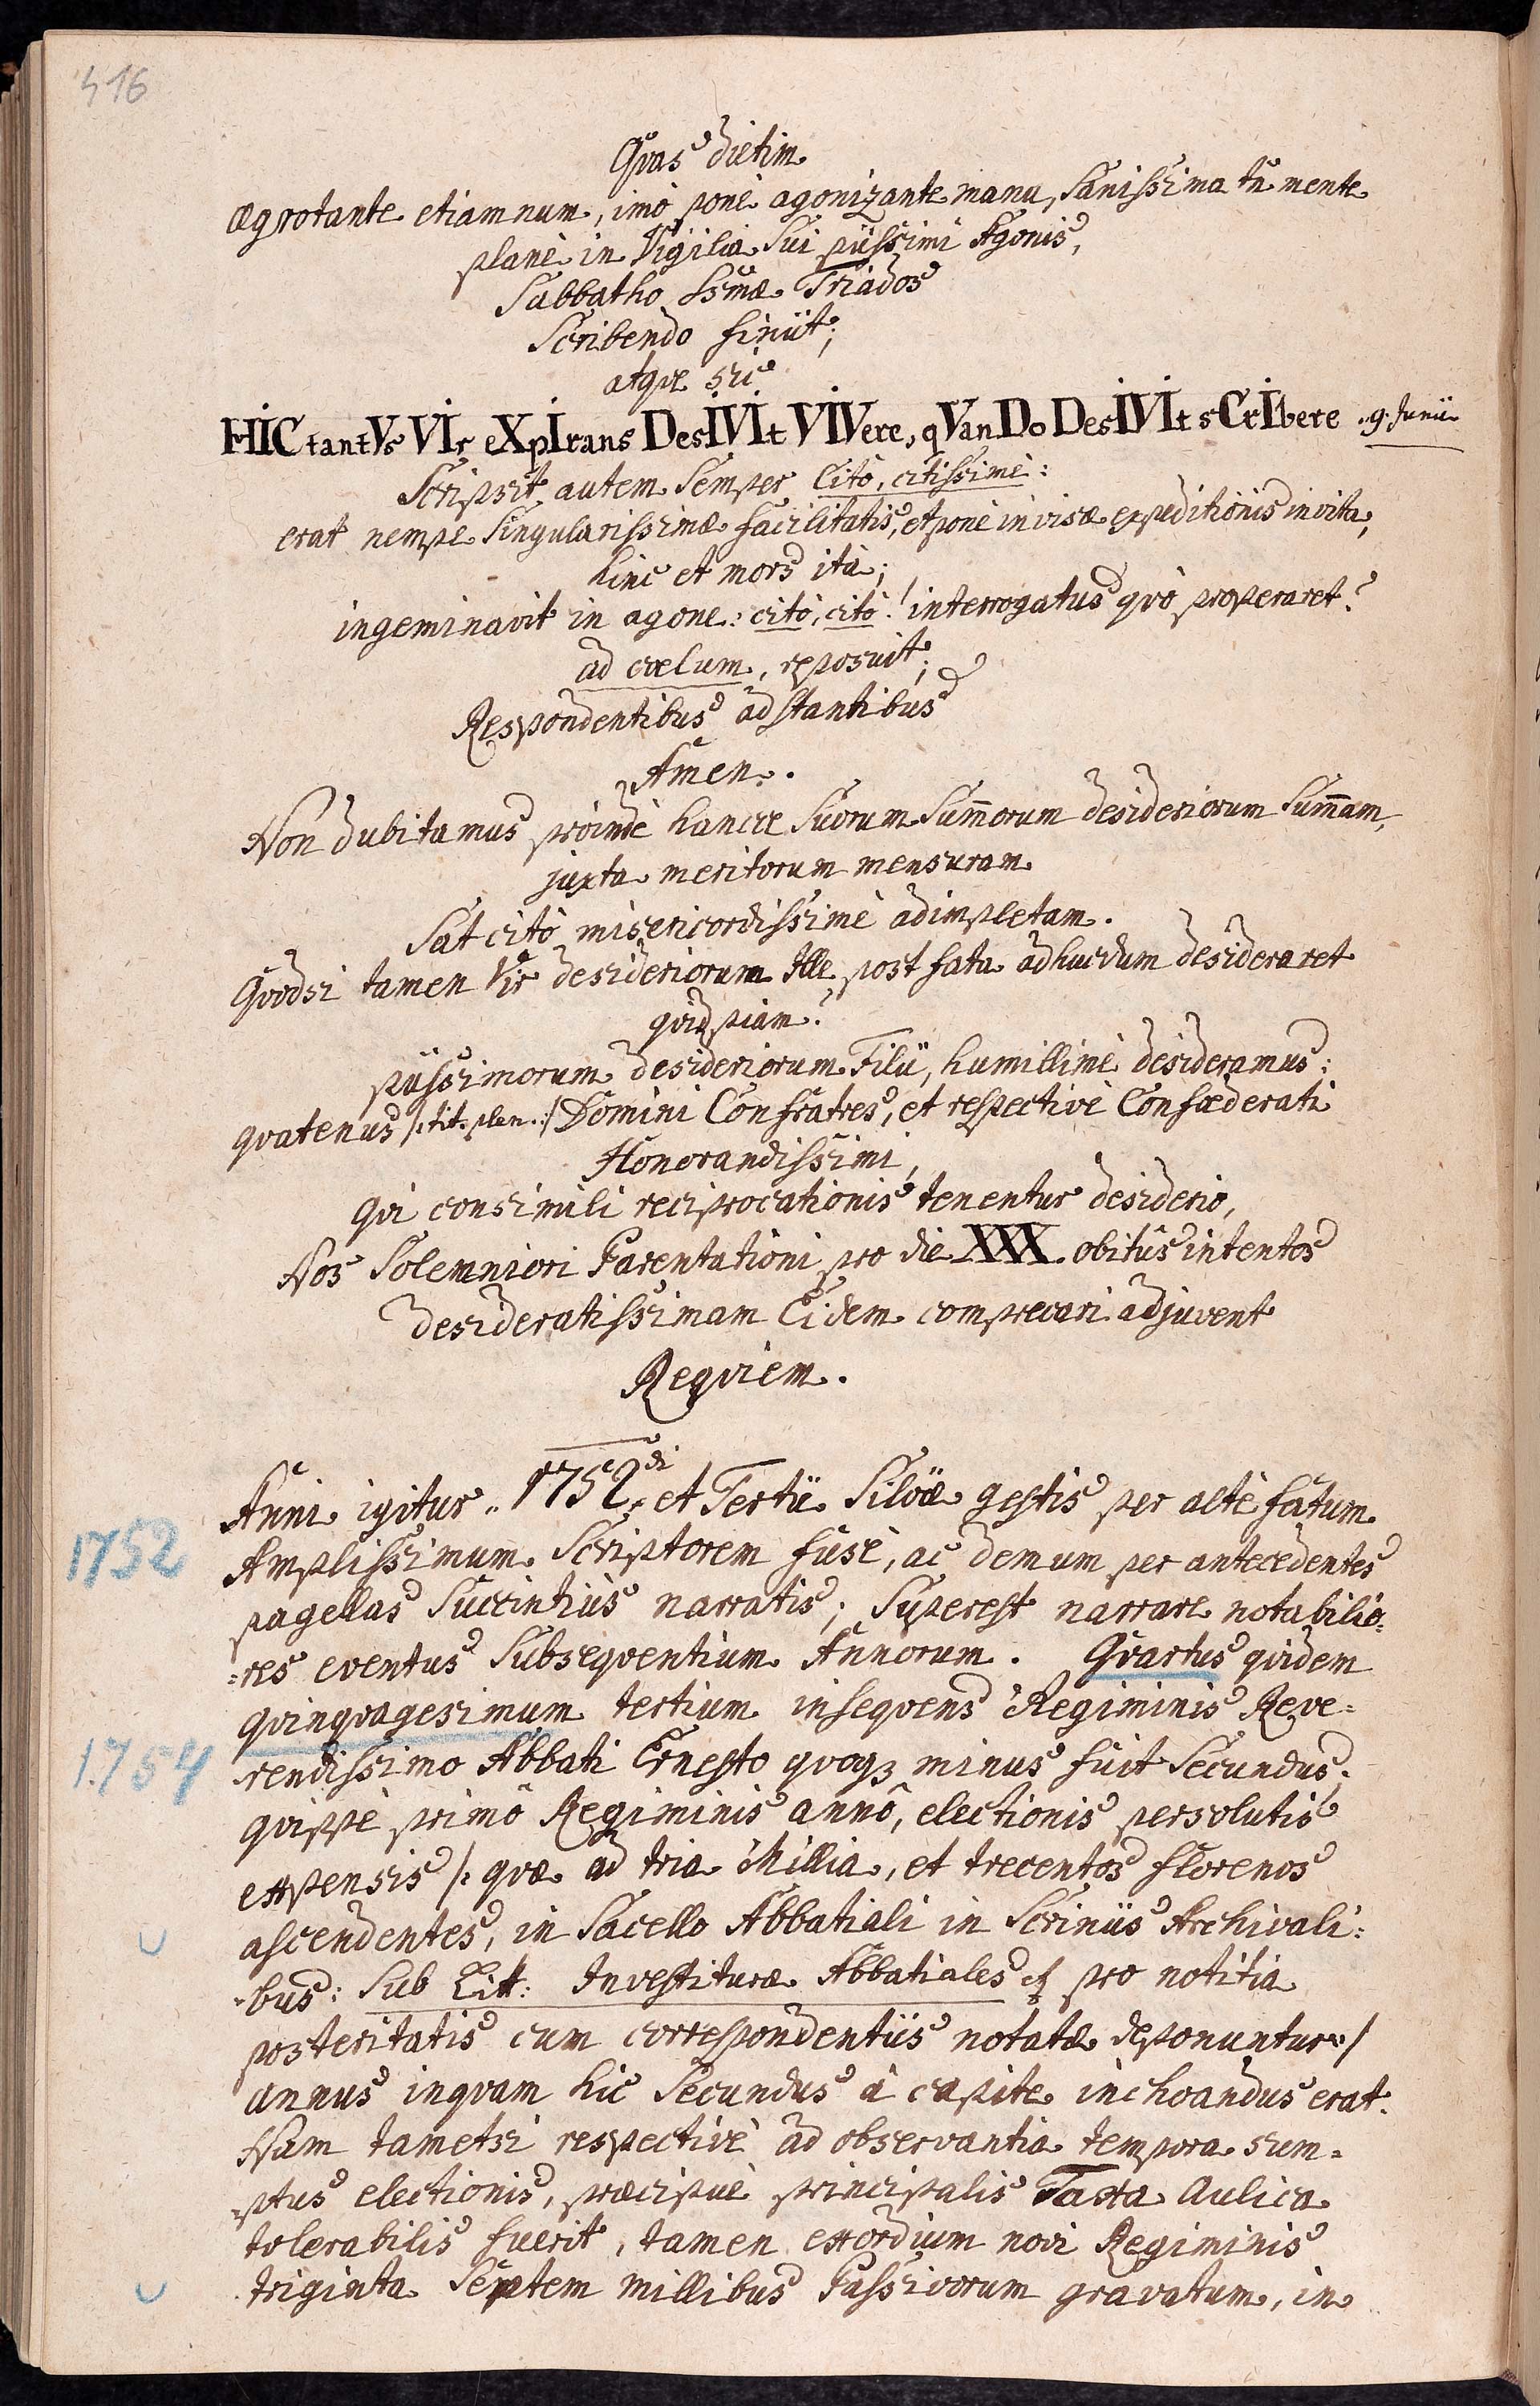 416
Qvas dietim
ægrotante etiamnum, imò ponè agonizante manu, Sanissima tñ mente
planè in Vigilia Sui piissimi Agonis,
Sabbatho Ssmæ Triados
Scribendo finiit;
atqve sic
HIC tantVs VIr eXpIrans DesIVIt VIVere, qVanDo DesIVIt sCrIbere .9. Junii
Scripsit autem Semper Citò, citissimè:
erat nempe Singularissimæ facilitatis, et ponè invisæ expeditionis in vita,
hinc et mors ita;
ingeminavit in agone: citò, citò! interrogatus qvò properaret?
ad cœlum, reposuit;
Respondentibus adstantibus
Amen.
Non dubitamus proindè hancce Suorum Sum̄orum desideriorum Sum̄am,
juxta meritorum mensuram
Sat citò misericordissimè adimpletam.
Qvodsi tamen Vir desideriorum Ille post fata adhucdum desideraret
qvidpiam?
piissimorum desideriorum Filii, humillimè desideramus:
qvatenus /: tit. plen. :/ Domini Confratres, et respectivè Confœderati
Honorandissimi,
qvi consimili reciprocationis tenentur desiderio,
Nos Solemniori Parentationi pro die XXX. obitûs intentos
desideratissimam Eidem comprecari adjuvent
Reqviem.
Anni igitur .. 1752di et Tertii Silôæ gestis per altè fatum
1752
Amplissimum Scriptorem fusè, ac demum per antecedentes
pagellas Succintiùs narratis; Superest narrare notabilio:
:res eventus Subseqventium Annorum. Qvartus qvidem
qvinqvagesimum tertium inseqvens Regiminis Reve:
1754
rendissimo Abbati Ernesto qvoqz minus fuit Secundus;
qvippè primô Regiminis annô, electionis persolutis
expensis /: qvæ ad tria Millia, et trecentos florenos
ascendentes, in Sacello Abbatiali in Scriniis Archivali:
:bus: Sub Litt: Investituræ Abbatiales pro notitia
posteritatis cum correspondentiis notatæ deponuntur :/
annus inqvam hic Secundus à capite inchoandus erat.
Nam tametsi respectivè ad observantia tempora sum:
:ptus electionis, præcipuè principalis Taxta Aulica
tolerabilis fuerit, tamen exordium novi Regiminis
triginta Septem millibus Passivorum gravatum, in